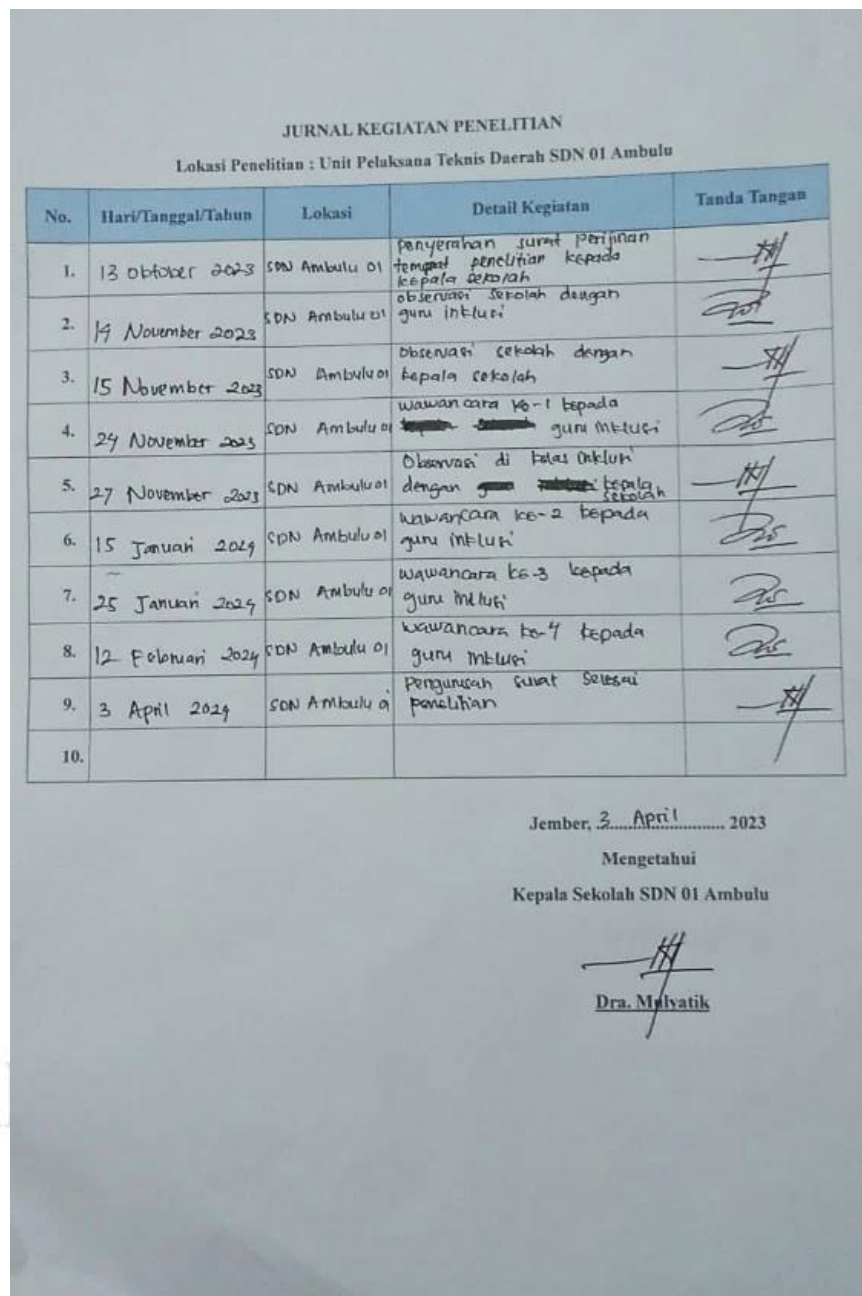 JURNAL KEGIATAN PENELITIAN
Lokasi Penelitian : Unit Pelaksana Teknis Daerah SDN 01 Ambulu
No. Hari/Tanggal/Tahun Lokasi Detail Kegiatan Tanda Tangan
1. 13 Oktober 2023 SDN Ambulu 01 penyerahan surat Perijinan
tempat penelitian kepada
kepala sekolah
2. 14 November 2023 SDN Ambulu 01 observasi sekolah dengan
guru inklusi
3. 15 November 2023 SDN Ambulu 01 Observasi sekolah dengan
kepala sekolah
4. 24 November 2023 SDN Ambulu 01 wawancara ke-1 kepada
guru inklusi
5. 27 November 2023 SDN Ambulu 01 Observasi di kelas inklusi
dengan kepala
sekolah
6. 15 Januari 2024 SDN Ambulu 01 wawancara ke-2 kepada
guru inklusi
7. 25 Januari 2024 SDN Ambulu 01 wawancara ke-3 kepada
guru inklusi
8. 12 Februari 2024 SDN Ambulu 01 wawancara ke-4 kepada
guru inklusi
9. 3 April 2024 SDN Ambulu 01 Pengurusan surat Selesai
penelitian
10.
Jember, 3 April 2023
Mengetahui
Kepala Sekolah SDN 01 Ambulu
Dra. Mulyatik